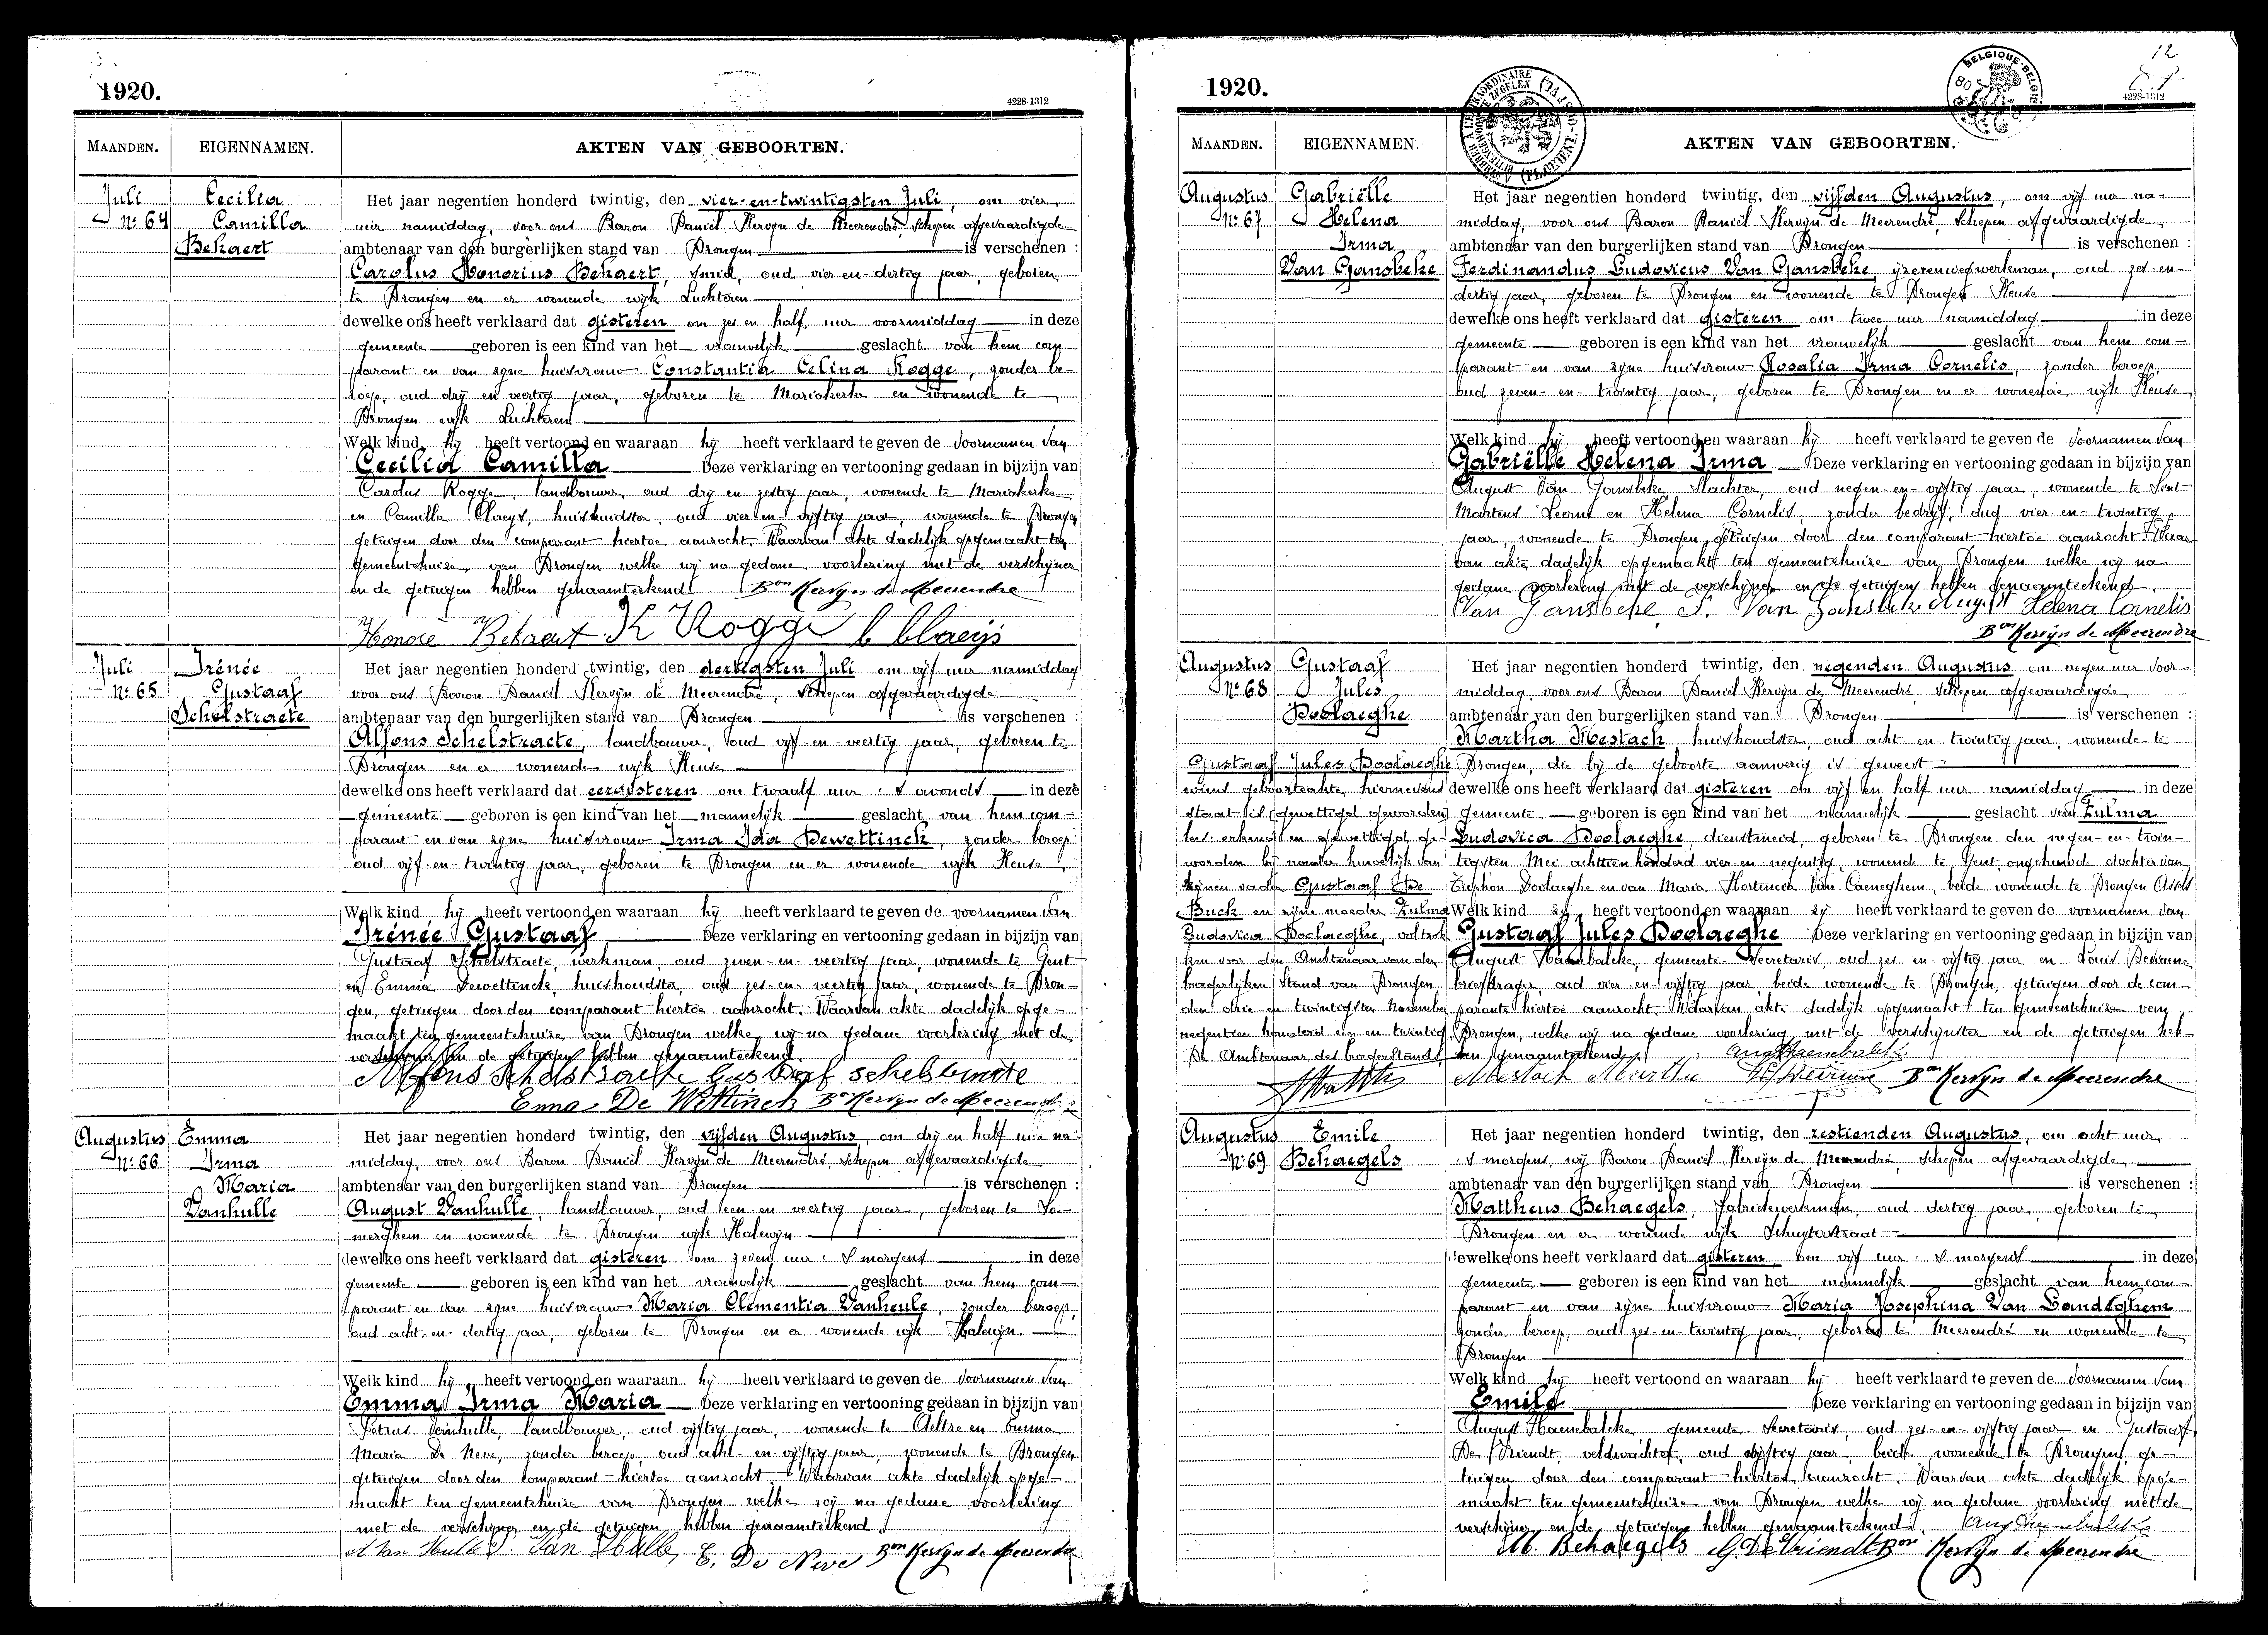 1920.
4228-1312
MAANDEN. EIGENNAMEN. AKTEN VAN GEBOORTEN.
Juli
N° 64
Cecilia
Camilla
Bekaert
Het jaar negentien honderd twintig, den vier-en-twintigsten Juli, om vier
uur namiddag, voor ons Baron Daniël Kervijn de Meerendré, schepen afgevaardigde
ambtenaar van den burgerlijken stand van Drongen is verschenen :
Carolus Honorius Bekaert, smid, oud vier en dertig jaar, geboren
te Drongen en er wonende wijk Luchteren
dewelke ons heeft verklaard dat gisteren om zes en half uur voormiddag in deze
gemeente geboren is een kind van het vrouwelijk geslacht van hem com-
parant en van zijne huisvrouw Constantia Celina Rogge, zonder be-
roep, oud drij en veertig jaar, geboren te Mariakerke en wonende te
Drongen wijk Luchteren
Welk kind hij heeft vertoond en waaraan hij heeft verklaard te geven de voornamen van
Cecilia Camilla Deze verklaring en vertooning gedaan in bijzijn van
Carolus Rogge, landbouwer, oud drij en zestig jaar, wonende te Mariakerke
en Camilla Claeys, huishoudster, oud vier en vijftig jaar, wonende te Drongen
getuigen door den comparant hiertoe aanzocht. Waarvan akte dadelijk opgemaakt ten
gemeentehuize van Drongen welke wij na gedane voorlezing met de verschijner
en de getuigen hebben genaamteekend Bon Kervijn de Meerendre
Honoré Bekaert K Rogge C Claeijs
Juli
N° 65
Irénée
Gustaaf
Schelstraete
Het jaar negentien honderd twintig, den dertigsten Juli om vijf uur namiddag
voor ons Baron Daniël Kervijn de Meerendré, schepen afgevaardigde
ambtenaar van den burgerlijken stand van Drongen is verschenen :
Alfons Schelstraete, landbouwer, oud vijf-en-veertig jaar, geboren te
Drongen en er wonende wijk Keuze
dewelke ons heeft verklaard dat eergisteren om twaalf uur 's avonds in deze
gemeente geboren is een kind van het mannelijk geslacht van hem com-
parant en van zijne huisvrouw Irma Ida Dewettinck, zonder beroep
oud vijf-en-twintig jaar, geboren te Drongen en er wonende wijk Keuze
Welk kind hij heeft vertoond en waaraan hij heeft verklaard te geven de voornamen van
Irénée Gustaaf Deze verklaring en vertooning gedaan in bijzijn van
Gustaaf Schelstraete, werkman, oud zeven-en-veertig jaar, wonende te Gent
en Emma Dewettinck, huishoudster, oud zes-en-veertig jaar, wonende te Dron-
gen, getuigen door den comparant hiertoe aanzocht. Waarvan akte dadelijk opge-
maakt ten gemeentehuize van Drongen welke wij na gedane voorlezing met de
verschijner en de getuigen hebben genaamteekend.
Alfons Schelstraete Gustaaf schelstraete
Emma De Wettinck Bon Kervijn de Meerendre
Augustus
N° 66
Emma
Irma
Maria
Vanhulle
Het jaar negentien honderd twintig, den vijfden Augustus, om drij en half uur na-
middag, voor ons Baron Daniël Kervijn de Meerendré, schepen afgevaardigde
ambtenaar van den burgerlijken stand van Drongen is verschenen :
August Vanhulle, landbouwer, oud een-en-veertig jaar, geboren te So-
merghem en wonende te Drongen wijk Halewijn
dewelke ons heeft verklaard dat gisteren om zeven uur 's morgens in deze
gemeente geboren is een kind van het vrouwelijk geslacht van hem com-
parant en van zijne huisvrouw Maria Clementia Vanheule, zonder beroep,
oud acht-en-dertig jaar, geboren te Drongen en er wonende wijk Halewijn
Welk kind hij heeft vertoond en waaraan hij heeft verklaard te geven de voornamen van
Emma Irma Maria Deze verklaring en vertooning gedaan in bijzijn van
Petrus Vanhulle, landbouwer, oud vijftig jaar, wonende te Aeltre en Emma
Maria De Neve, zonder beroep, oud acht-en-vijftig jaar, wonende te Drongen
getuigen door den comparant hiertoe aanzocht. Waarvan akte dadelijk opge-
maakt ten gemeentehuize van Drongen welke wij na gedane voorlezing
met de verschijner en de getuigen hebben genaamteekend
A Van Hulle P. Van Hulle E. De Neve Bon Kervijn de Meerendre
12
1920.
4228-1312
BELGIQUE-BELGIE
MAANDEN. EIGENNAMEN. AKTEN VAN GEBOORTEN.
Augustus
N° 67
Gabriëlle
Helena
Irma
Van Gansbeke
Het jaar negentien honderd twintig, den vijfden Augustus, om vijf uur na-
middag, voor ons Baron Daniël Kervijn de Meerendré, schepen afgevaardigde
ambtenaar van den burgerlijken stand van Drongen is verschenen :
Ferdinandus Ludovicus Van Gansbeke, ijzerenwegwerkman, oud zes-en-
dertig jaar, geboren te Drongen en wonende te Drongen Keuze
dewelke ons heeft verklaard dat gisteren om twee uur namiddag in deze
gemeente geboren is een kind van het vrouwelijk geslacht van hem com-
parant en van zijne huisvrouw Rosalia Irma Cornelis, zonder beroep,
oud zeven-en-twintig jaar, geboren te Drongen en er wonende, wijk Keuze
Welk kind hij heeft vertoond en waaraan hij heeft verklaard te geven de voornamen van
Gabriëlle Helena Irma Deze verklaring en vertooning gedaan in bijzijn van
August Van Gansbeke, slachter, oud negen-en-vijftig jaar, wonende te Sint
Martens Leerne en Helena Cornelis, zonder bedrijf, oud vier-en-twintig
jaar, wonende te Drongen, getuigen door den comparant hiertoe aanzocht. Waar-
van akte dadelijk opgemaakt ten gemeentehuize van Drongen welke wij na
gedane voorlezing met de verschijner en de getuigen hebben genaamteekend.
Van Gansbeke Van Gansbeke August Helena Cornelis
Bon Kervijn de Meerendre
Augustus
N° 68
Gustaaf
Jules
Doolaeghe
Gustaaf Jules Doolaeghe
wiens geboorteakte hiernevens
staat is gewettigd geworden
erkend en gewettigd ge-
worden bij nonder huwelijk van
zijnen vader Gustaaf De
Buck en zijne moeder Zulma
Ludovica Doolaeghe, voltrok
ken voor den Ambtenaar van den
burgerlijken Stand van Drongen
den drie en twintigsten November
negentien honderd een en twintig
De Ambtenaar des burgerstands
Het jaar negentien honderd twintig, den negenden Augustus om negen uur voor-
middag, voor ons Baron Daniël Kervijn de Meerendré, schepen afgevaardigde
ambtenaar van den burgerlijken stand van Drongen is verschenen :
Martha Mestach huishoudster, oud acht en twintig jaar, wonende te
Drongen, die bij de geboorte aanwezig is geweest
dewelke ons heeft verklaard dat gisteren om vijf en half uur namiddag in deze
gemeente geboren is een kind van het mannelijk geslacht van Zulma
Ludovica Doolaeghe, dienstmeid, geboren te Drongen den negen-en-twin-
tigsten Mei achttien honderd vier en negentig, wonende te Gent, ongehuwde dochter van
Triphon Doolaeghe en van Maria Hortencia Van Caeneghem, beide wonende te Drongen Assels
Welk kind zij heeft vertoond en waaraan zij heeft verklaard te geven de voornamen van
Gustaaf Jules Doolaeghe Deze verklaring en vertooning gedaan in bijzijn van
August Haembalcke, gemeente Secretaris, oud zes-en-vijftig jaar en Louis
briefdrager, oud vier-en-vijftig jaar, beide wonende te Drongen, getuigen door de com-
parante hiertoe aanzocht. Waarvan akte dadelijk opgemaakt ten gemeentehuize van
Drongen, welke wij na gedane voorlezing met de verschijnster en de getuigen heb-
ben genaamteekend.
Mestach Martha Bon Kervijn de Meerendre
Augustus
N° 69
Emile
Behaegels
Het jaar negentien honderd twintig, den zestienden Augustus, om acht uur
's morgens, wij Baron Daniël Kervijn de Meerendré, schepen afgevaardigde
ambtenaar van den burgerlijken stand van Drongen is verschenen :
Mattheus Behaegels, fabriekwerkman, oud dertig jaar, geboren te
Drongen en er wonende wijk Schuyterstraat
dewelke ons heeft verklaard dat gisteren om vijf uur 's morgens in deze
gemeente geboren is een kind van het mannelijk geslacht van hem com-
parant en van zijne huisvrouw Maria Josephina Van Landeghem
zonder beroep, oud zes-en-twintig jaar, geboren te Meerendré en wonende te
Drongen
Welk kind hij heeft vertoond en waaraan hij heeft verklaard te geven de voornamen van
Emile Deze verklaring en vertooning gedaan in bijzijn van
August Haembalcke gemeente secretaris, oud zes-en-vijftig jaar en Gustaaf
De Vriendt, veldwachter, oud vijftig jaar, beide wonende te Drongen, ge-
tuigen door den comparant hiertoe aanzocht. Waarvan akte dadelijk opge-
maakt ten gemeentehuize van Drongen welke wij na gedane voorlezing met de
verschijner en de getuigen hebben genaamteekend.
M. Behaegels G. De Vriendt Bon Kervijn de Meerendre